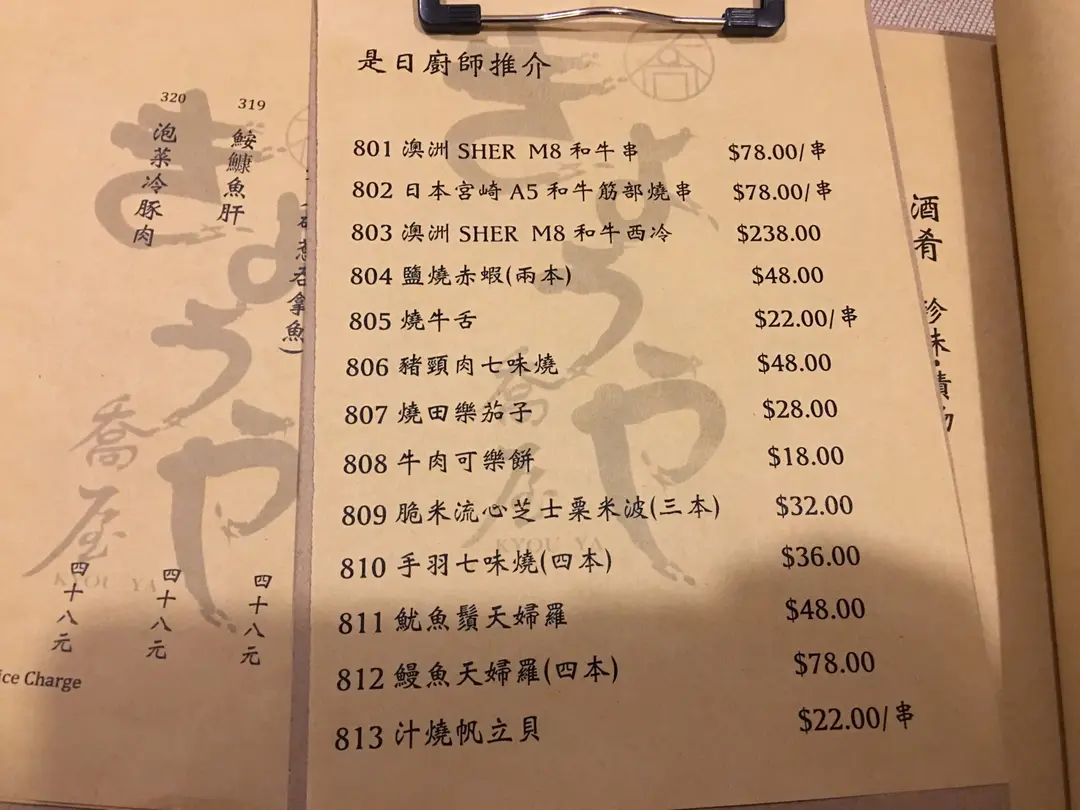 是日廚師推介
801 澳洲 SHER M8 和牛串 $78.00/串
802 日本宮崎 A5 和牛筋部燒串 $78.00/串
803 澳洲 SHER M8 和牛西冷 $238.00
804 鹽燒赤蝦(兩本) $48.00
805 燒牛舌 $22.00/串
806 豬頸肉七味燒 $48.00
807 燒田樂茄子 $28.00
808 牛肉可樂餅 $18.00
809 脆米流心芝士粟米波(三本) $32.00
810 手羽七味燒(四本) $36.00
811 魷魚鬚天婦羅 $48.00
812 鰻魚天婦羅(四本) $78.00
813 汁燒帆立貝 $22.00/串
319
鮟鱇魚肝
四十八元
320
泡菜冷豚肉
四十八元
四十八元
吞拿魚)
ice Charge
酒肴 珍味·漬物
きょうや
喬屋
KYOU YA
きょうや
喬屋
KYOU YA